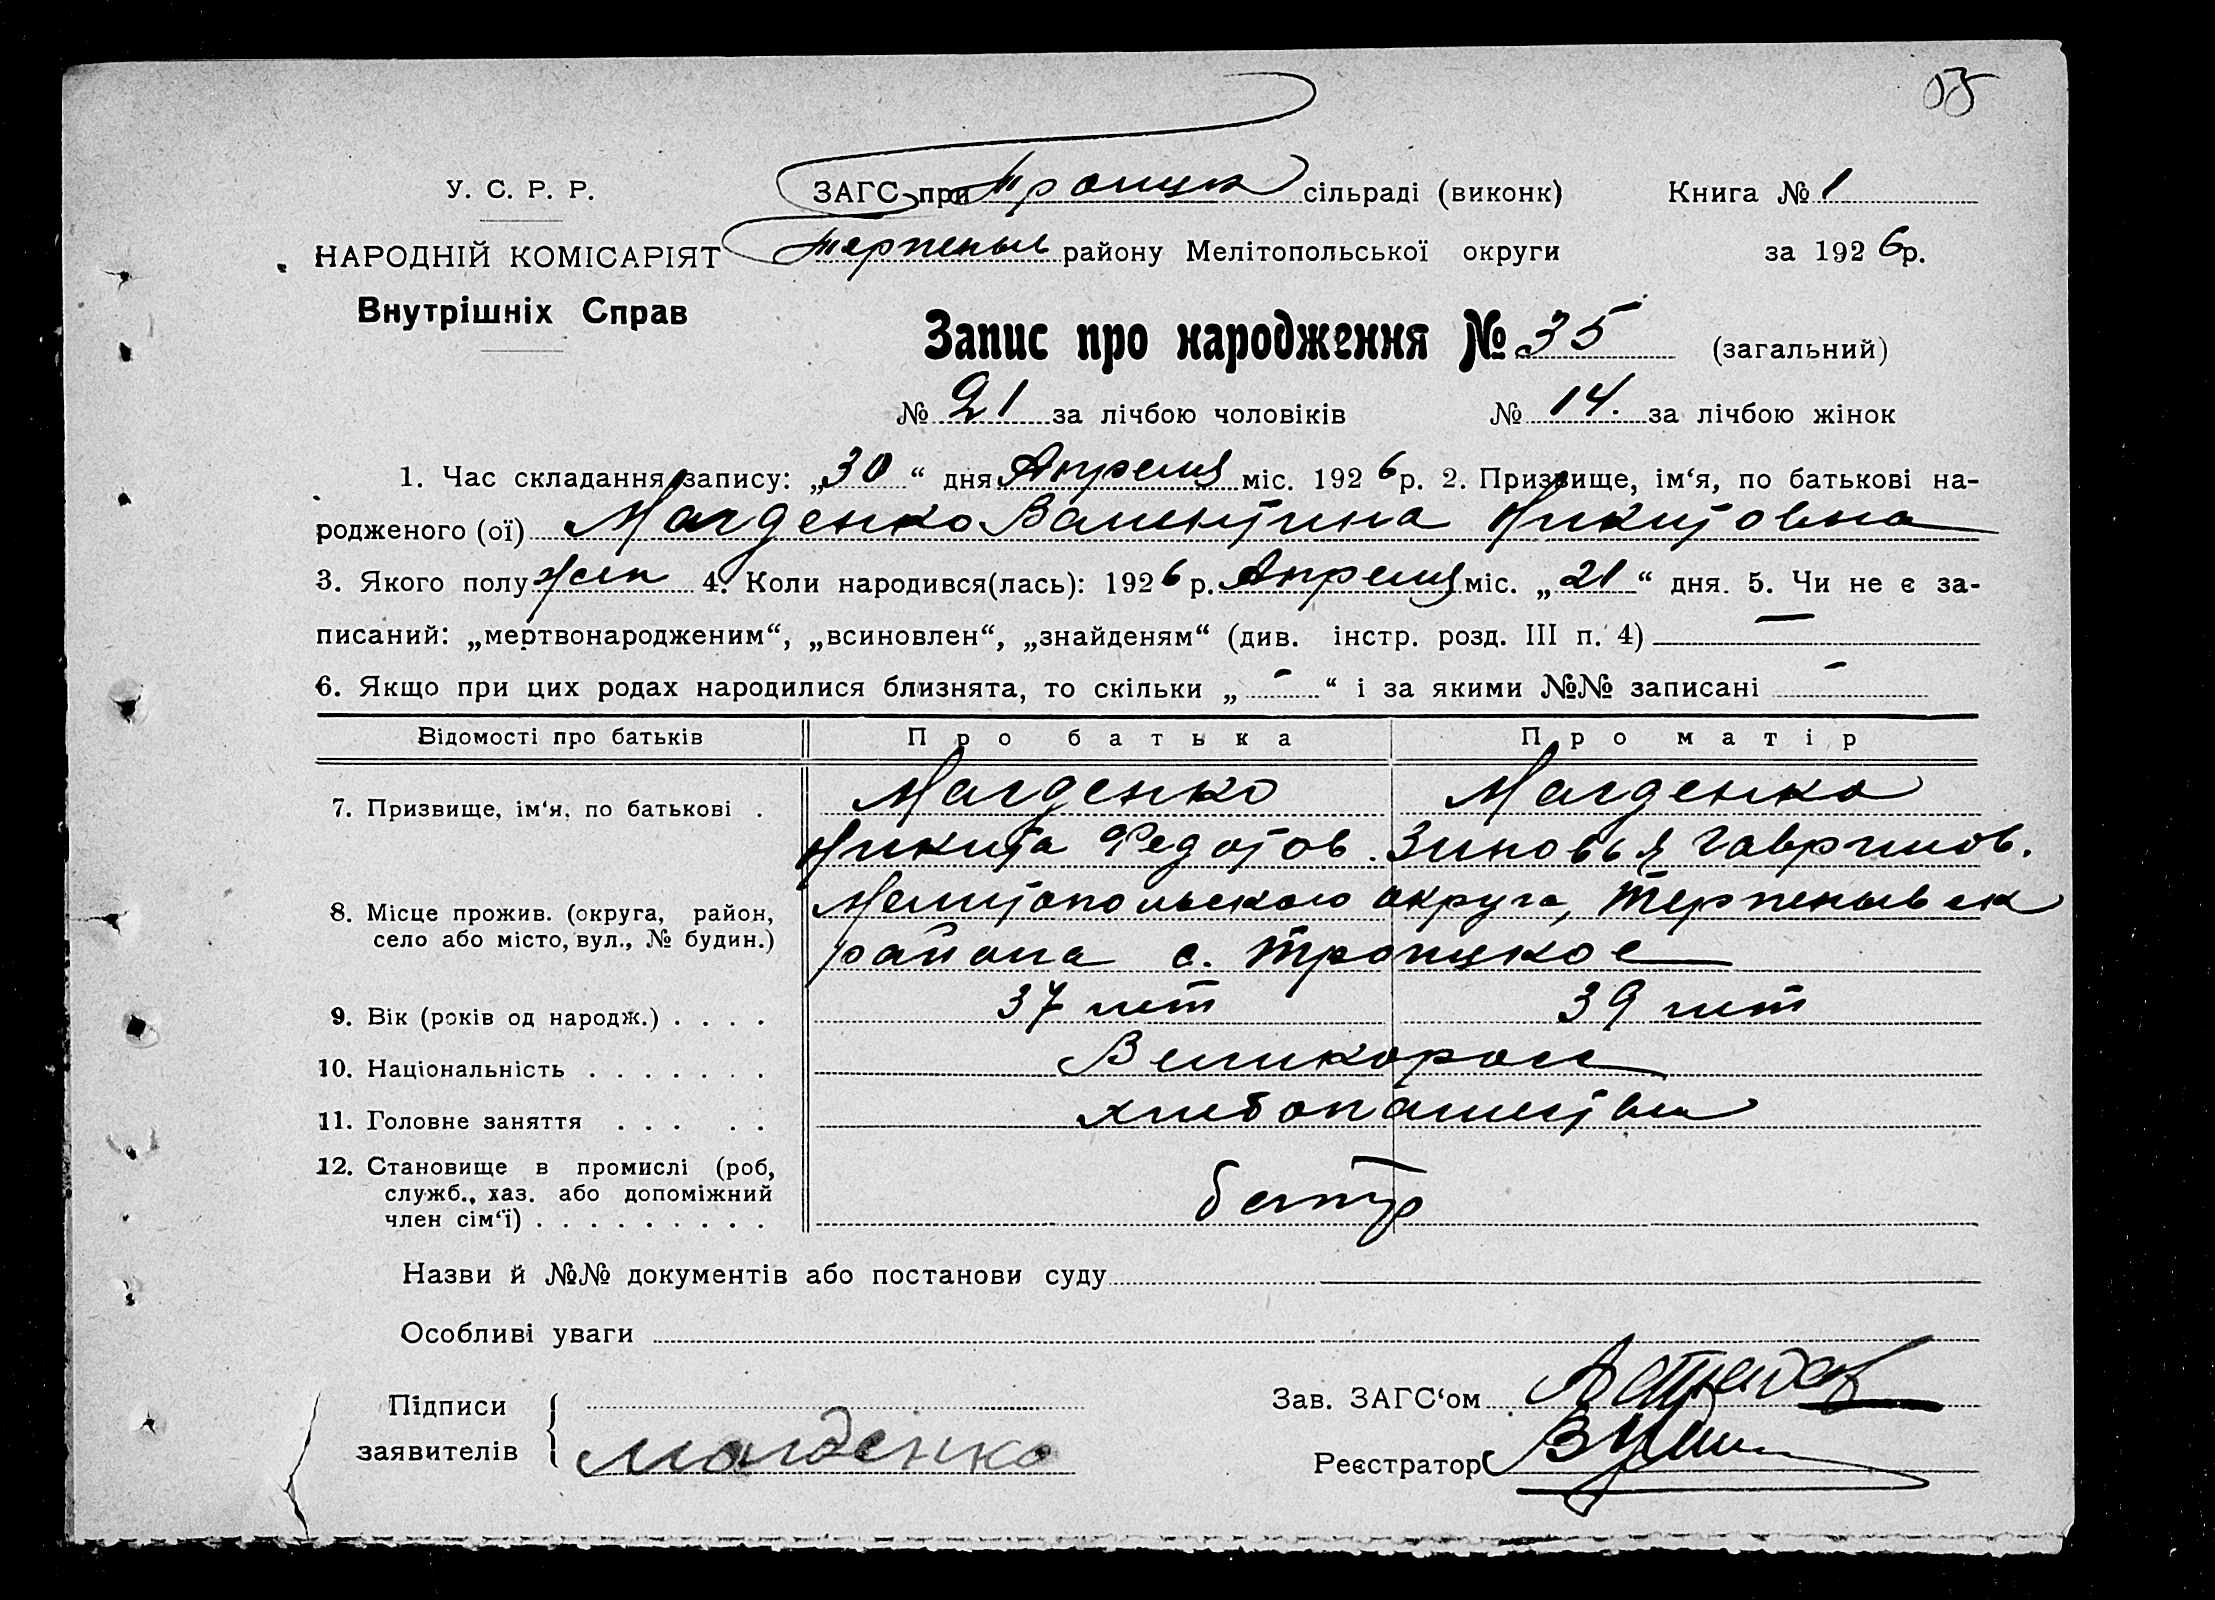 05
У. С. Р. Р. ЗАГС при Троицк сільраді (виконк) Книга № 1
НАРОДНІЙ КОМІСАРІЯТ Терпеньев району Мелітопольської округи за 1926р.
Внутрішніх Справ
Запис про народження № 35 (загальний)
№ 21 за лічбою чоловіків № 14. за лічбою жінок
1. Час складання запису: „30“ дня Апреля міс. 1926р. 2. Призвище, ім‘я, по батькові на-
родженого (ої) Магденко Валентина Никитовна
3. Якого полу жен 4. Коли народився(лась): 1926р. Апреля міс. „21“ дня. 5. Чи не є за-
писаний: „мертвонародженим“, „всиновлен“, „знайденям“ (див. інстр. розд. III п. 4) —
6. Якщо при цих родах народилися близнята, то скільки „-“ і за якими №№ записані -
Відомості про батьків Про батька Про матір
7. Призвище, ім‘я, по батькові . Магденко Магденко
Никита Федотов. Зиновья Гаврилов.
8. Місце прожив. (округа, район, Мелитопольского округа, Терпеньевск
село або місто, вул., № будин.) района с. Троицкое
9. Вік (років од народж.) . . . . 37 лет 39 лет
10. Національність . . . . . . . Великорос
11. Головне заняття . . . . . хлебопашество
12. Становище в промислі (роб,
служб., хаз. або допоміжний
член сім‘ї) . . . . . . . . .
Назви й №№ документів або постанови суду
Особливі уваги
Підписи Зав. ЗАГС‘ом
заявителів Магденко Реєстратор